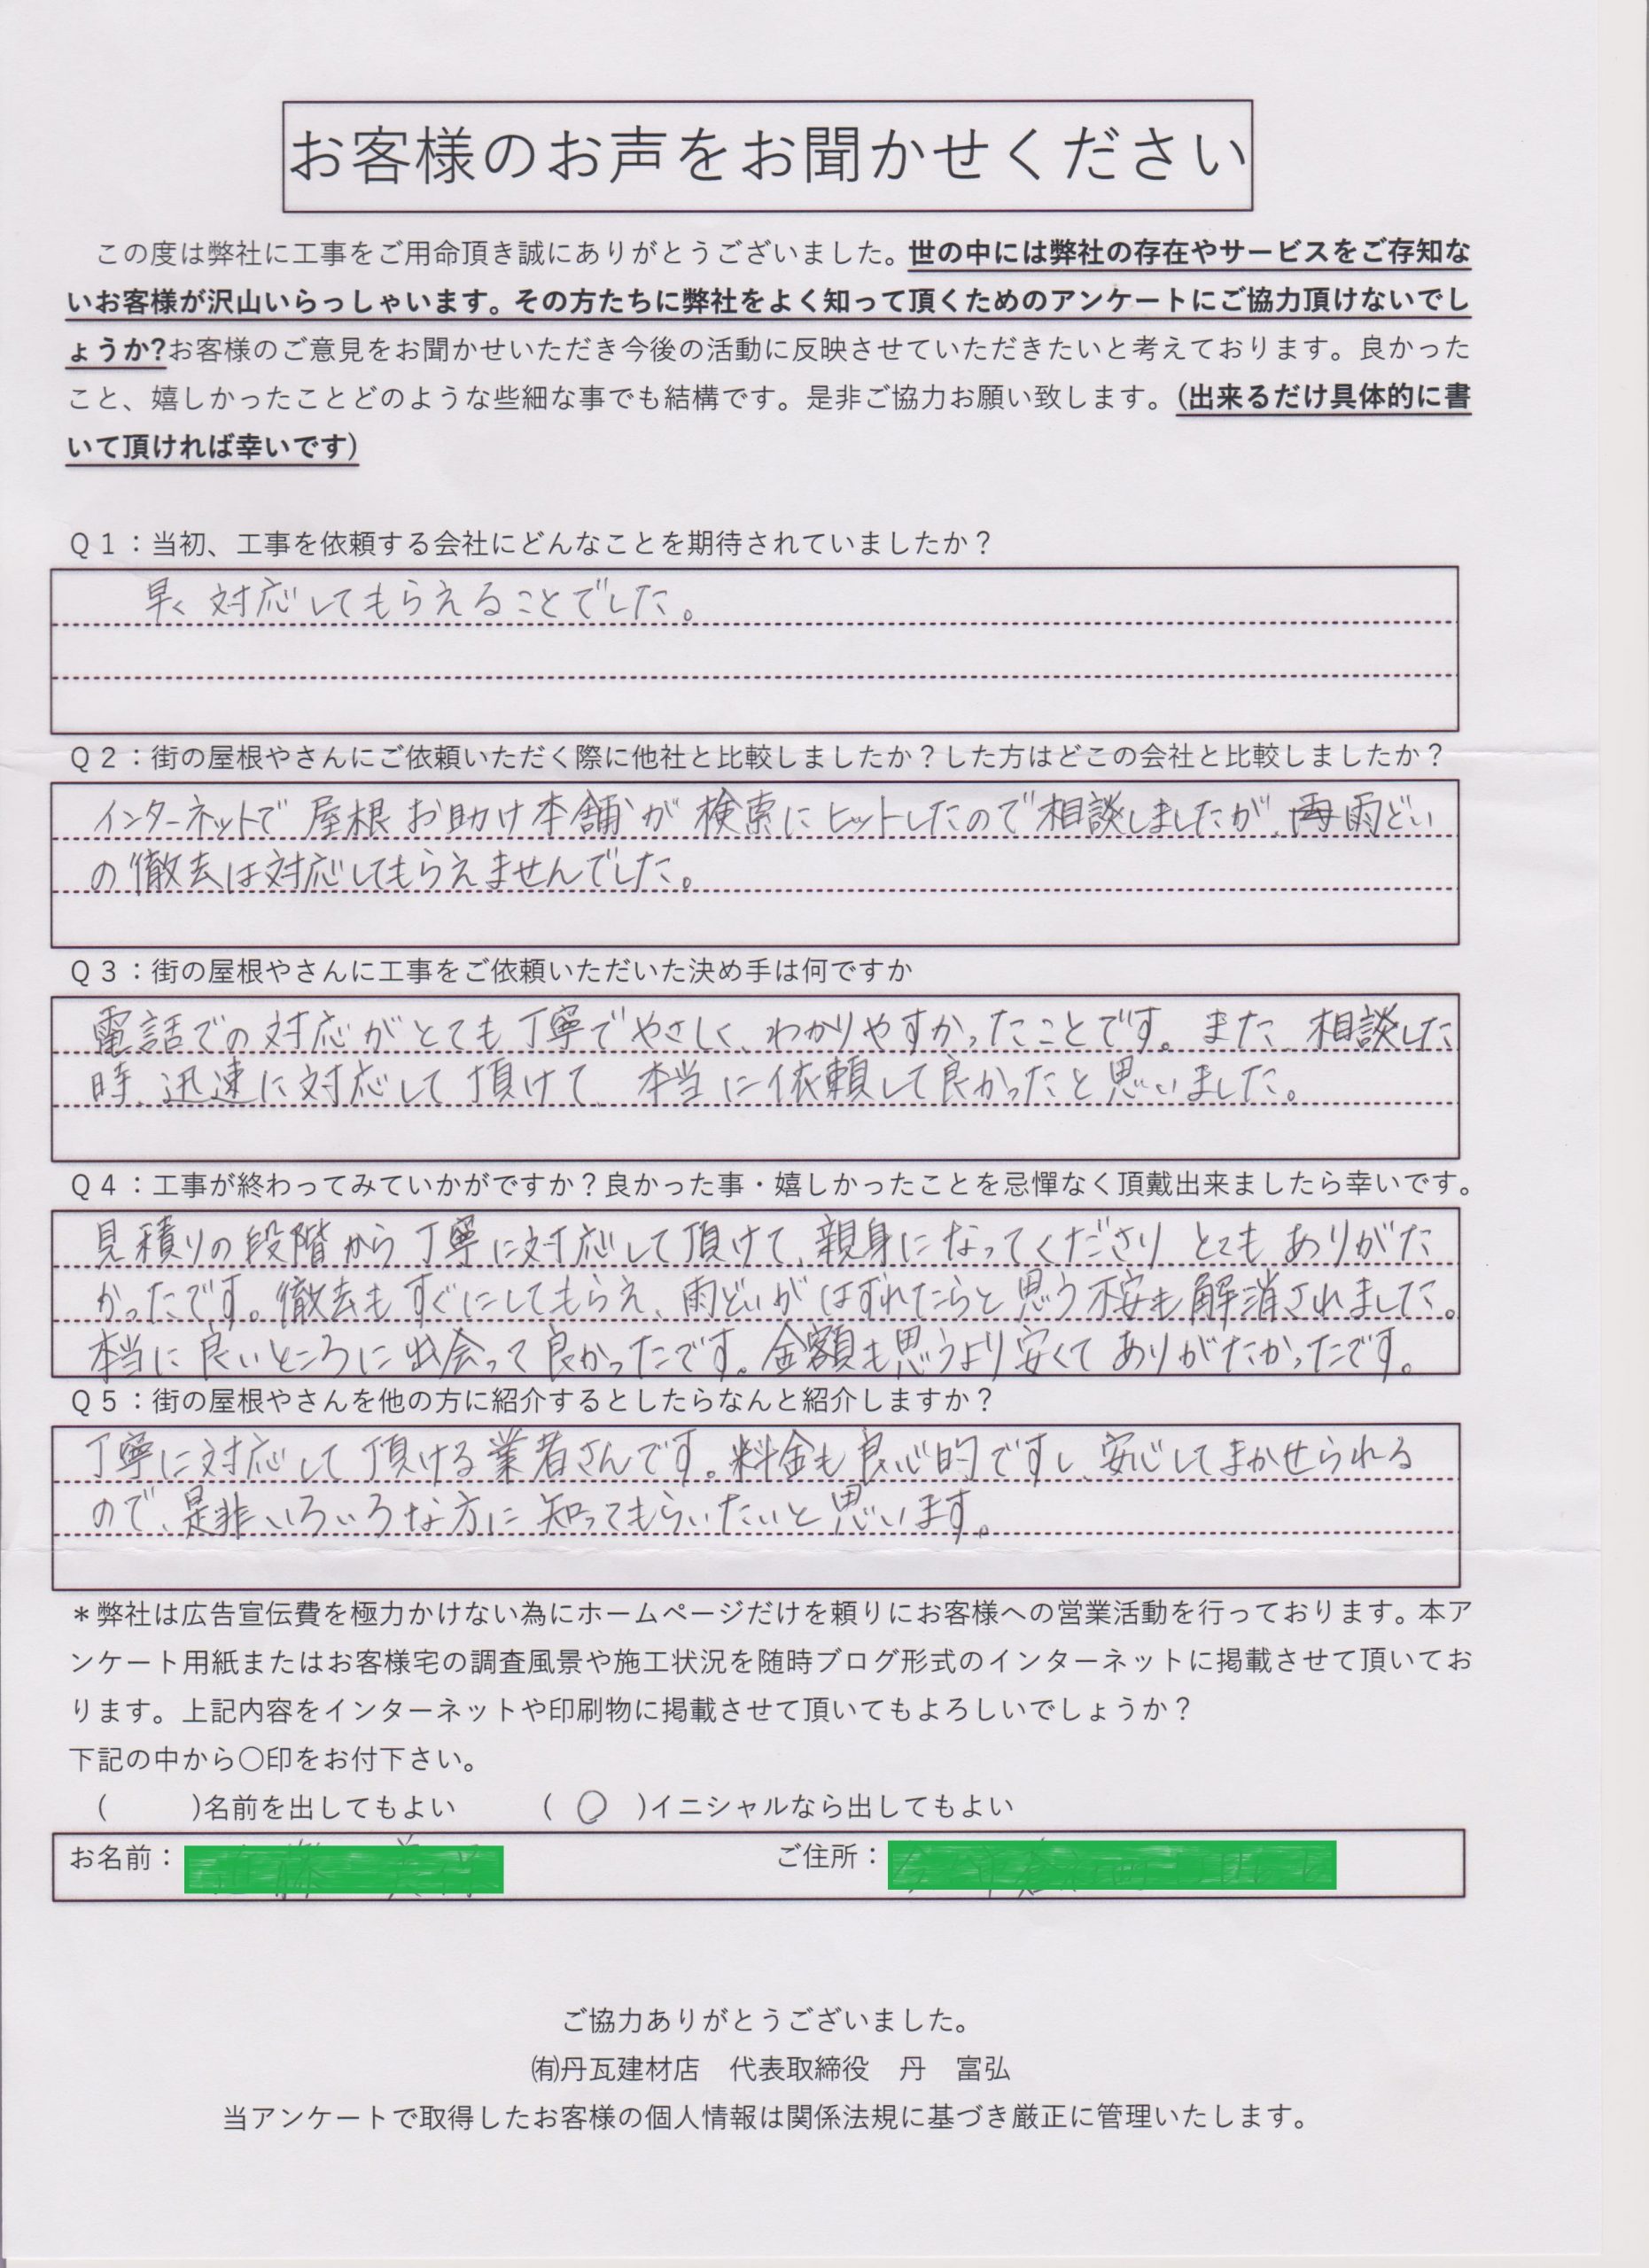 お客様のお声をお聞かせください
この度は弊社に工事をご用命頂き誠にありがとうございました。世の中には弊社の存在やサービスをご存知な
いお客様が沢山いらっしゃいます。その方たちに弊社をよく知って頂くためのアンケートにご協力頂けないでし
ょうか?お客様のご意見をお聞かせいただき今後の活動に反映させていただきたいと考えております。良かった
こと、嬉しかったことどのような些細な事でも結構です。是非ご協力お願い致します。(出来るだけ具体的に書
いて頂ければ幸いです)
Q1:当初、工事を依頼する会社にどんなことを期待されていましたか?
早く対応してもらえることでした。
Q2:街の屋根やさんにご依頼いただく際に他社と比較しましたか?した方はどこの会社と比較しましたか?
インターネットで屋根お助け本舗が検索にヒットしたので相談しましたが、雨どい
の徹去は対応してもらえませんでした。
Q3:街の屋根やさんに工事をご依頼いただいた決め手は何ですか
電話での対応がとても丁寧でやさしく、わかりやすかったことです。また、相談した
時、迅速に対応して頂けて、本当に依頼して良かったと思いました。
Q4:工事が終わってみていかがですか?良かった事・嬉しかったことを忌憚なく頂戴出来ましたら幸いです。
見積りの段階から丁寧に対応して頂けて、親身になってくださり、とてもありがた
かったです。徹去もすぐにしてもらえ、雨どいがはずれたらと思う不安も解消されました。
本当に良いところに出会って良かったです。金額も思うより安くてありがたかったです。
Q5:街の屋根やさんを他の方に紹介するとしたらなんと紹介しますか?
丁寧に対応して頂ける業者さんです。料金も良心的ですし、安心してまかせられる
ので、是非いろいろな方に知ってもらいたいと思います。
*弊社は広告宣伝費を極力かけない為にホームページだけを頼りにお客様への営業活動を行っております。本ア
ンケート用紙またはお客様宅の調査風景や施工状況を随時ブログ形式のインターネットに掲載させて頂いてお
ります。上記内容をインターネットや印刷物に掲載させて頂いてもよろしいでしょうか?
下記の中から〇印をお付下さい。
(　　　)名前を出してもよい　　　( ○ )イニシャルなら出してもよい
お名前:　　　ご住所:
ご協力ありがとうございました。
㈲丹瓦建材店　代表取締役　丹　富弘
当アンケートで取得したお客様の個人情報は関係法規に基づき厳正に管理いたします。